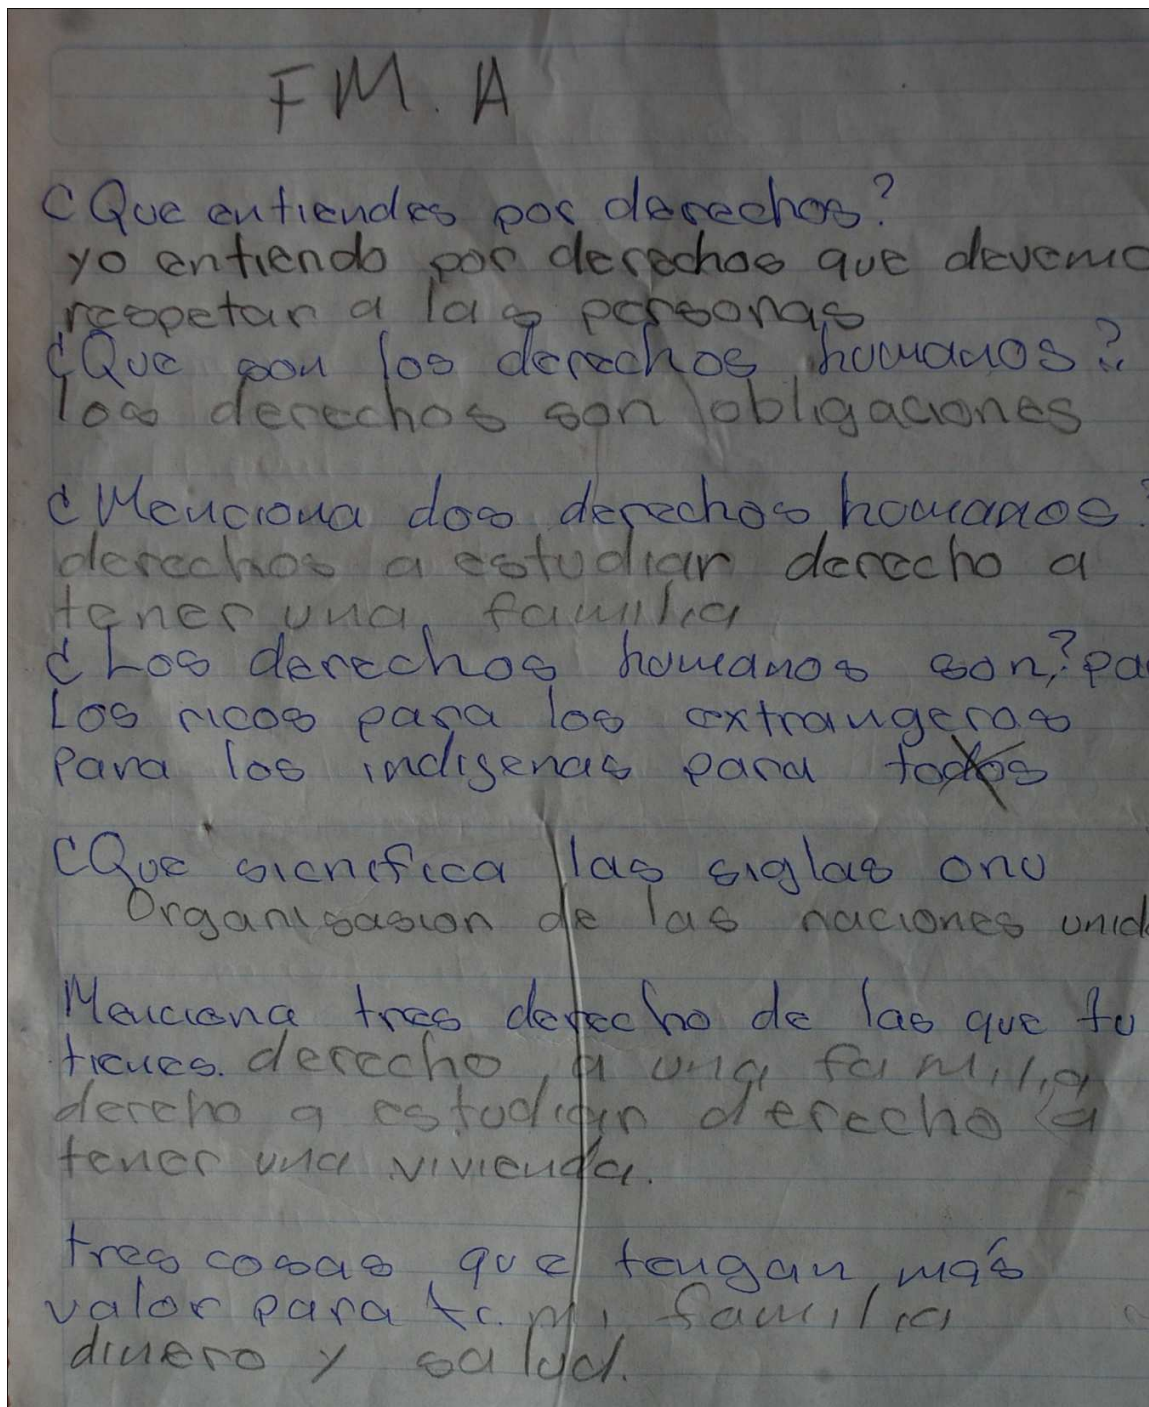 FM. A
¿Que entiendes por derechos?
yo entiendo por derechos que devemo
respetar a las personas
¿Que son los derechos humanos?
los derechos son obligaciones
¿Menciona dos derechos humanos?
derechos a estudiar derecho a
tener una familia
¿Los derechos humanos son? pa
Los ricos para los extrangeros
para los indigenas para todos
¿Que sicnifica las siglas onu
Organisasion de las naciones unid
Menciona tres derecho de las que tu
tienes. derecho a una familia
derecho a estudiar derecho a
tener una vivienda.
tres cosas que tengan más
valor para ti. mi familia
dinero y salud.